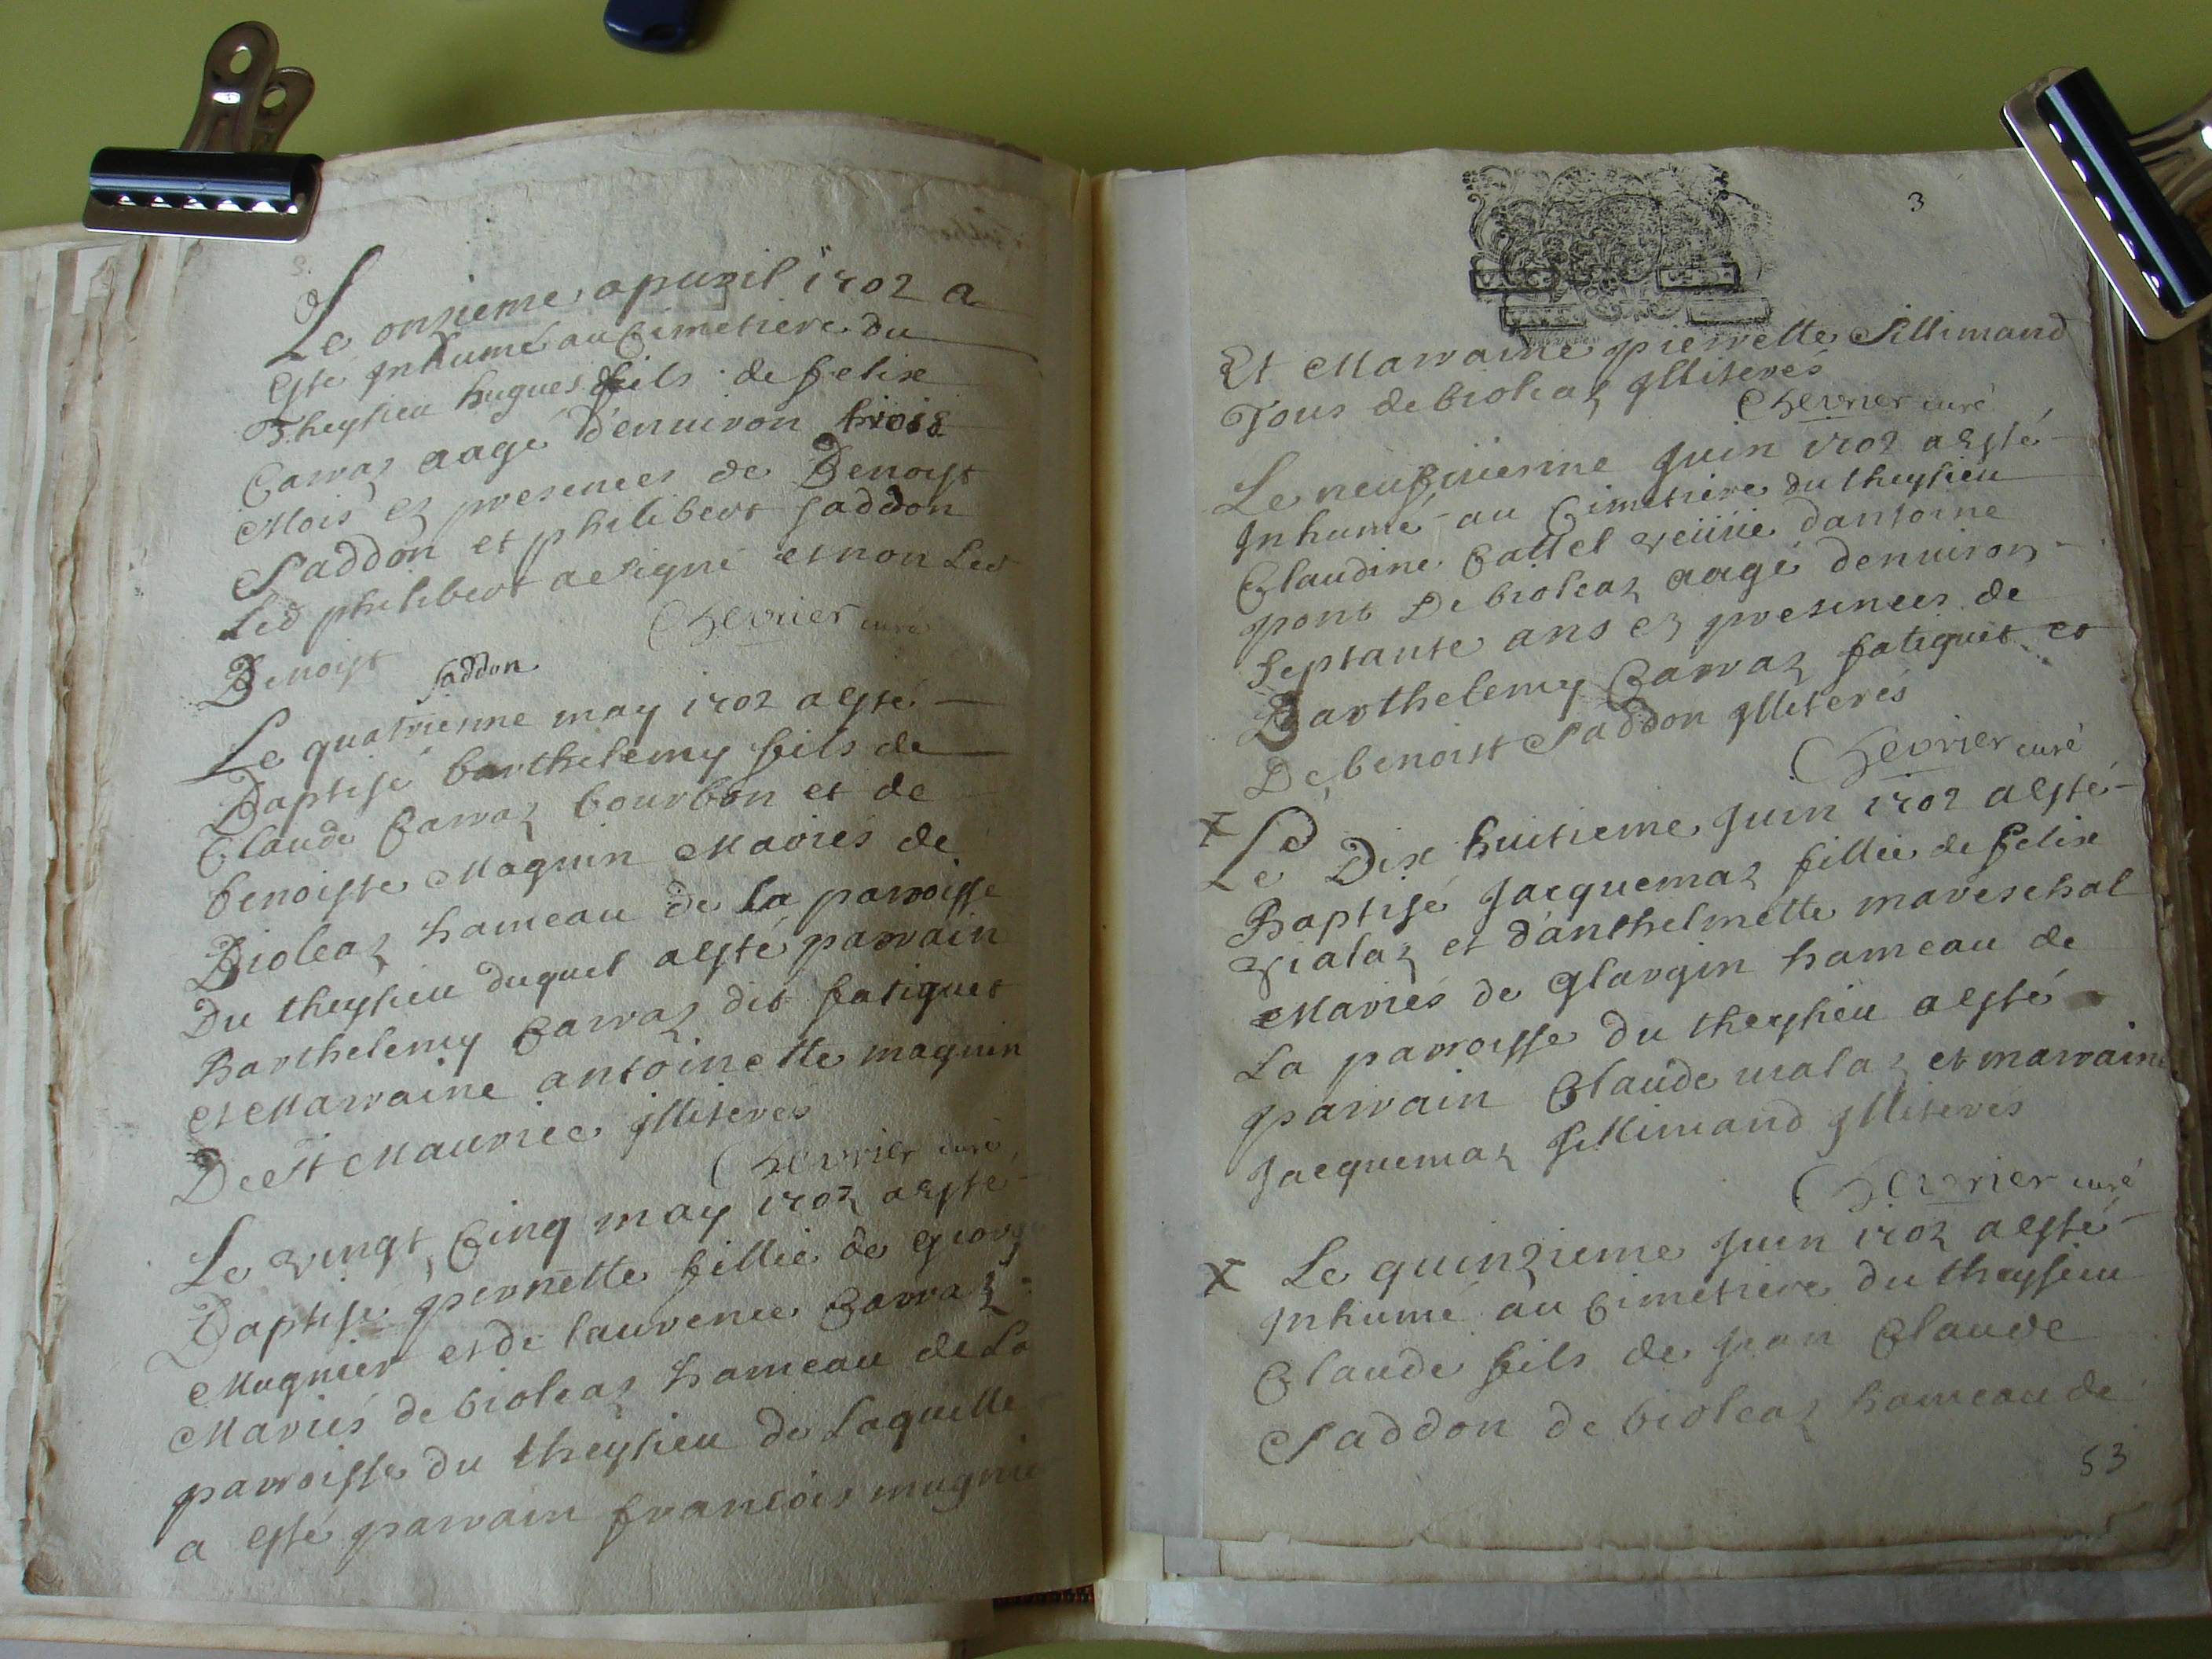 Le onzieme apuril 1702 a
esté Inhumé au Cimetiere du
Theysieu hugues fils de felix
Carraz aagé d'enuiron trois
Mois ez presences de Benoist
Saddon et philibert saddon
Led philibert a signé et non Led
Benoist
Chevrier curé
saddon
Le quatrieme may 1702 a esté
Baptisé barthelemy fils de
Claude Carraz bourbon et de
benoiste Magnin Mariés de
Bioleaz hameau de la parroisse
Du theysieu duquel a esté parrain
Barthelemy Carraz dit fatiguet
et Marraine antoinette magnin
De St Maurice Illiterés
Chevrier curé
Le vingt Cinq may 1702 a esté
Baptisé pernette fillie de George
Mugnier et de laurence Carraz
Mariés de bioleaz hameau de La
parroisse du theysieu de Laquelle
a esté parrain francois mugnie
3
Et Marraine pierrette Sillimand
Tous de bioleaz Illiterés
Chevrier curé
Le neufuieme Juin 1702 a esté
Inhumé au Cimetiere du theysieu
Claudine Cattel veüue d'antoine
pont De bioleaz aagé d'enuiron
septante ans ez presences de
Barthelemy Carraz fatiguet et
De benoist Saddon Illiterés
Chevrier curé
x Le Dix huitieme Juin 1702 a esté
Baptisé Jacquemaz fillie de felix
vialaz et d'anthelmette mareschal
Mariés de Glargin hameau de
La parroisse du theysieu a esté
parrain Claude uialaz et marraine
Jacquemaz sillimand Illiterés
Chevrier curé
x Le quinzieme Juin 1702 a esté
Inhumé au Cimetiere du theysieu
Claude fils de Jean Claude
Saddon de bioleaz hameau de
53